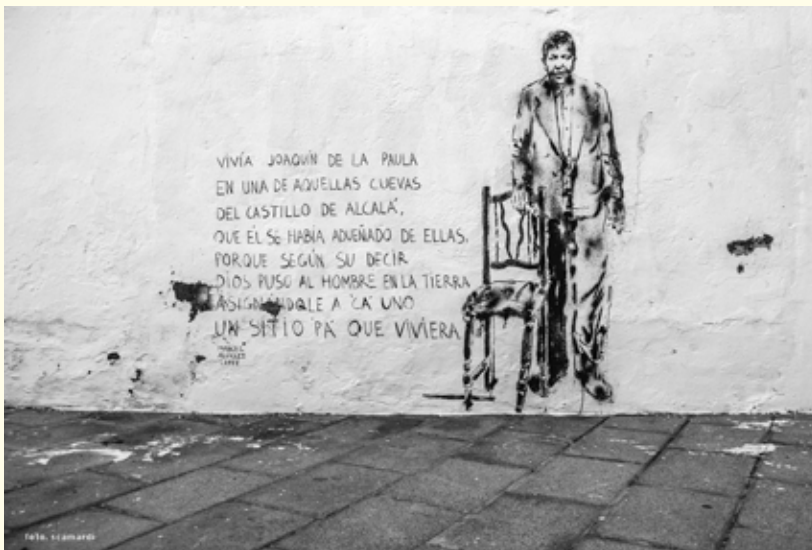 VIVÍA JOAQUÍN DE LA PAULA
EN UNA DE AQUELLAS CUEVAS
DEL CASTILLO DE ALCALÁ,
QUE ÉL SE HABÍA ADUEÑADO DE ELLAS.
PORQUE SEGÚN SU DECIR
DIOS PUSO AL HOMBRE EN LA TIERRA
ASIGNÁNDOLE A CA' UNO
UN SITIO PA' QUE VIVIERA
foto. scamardi